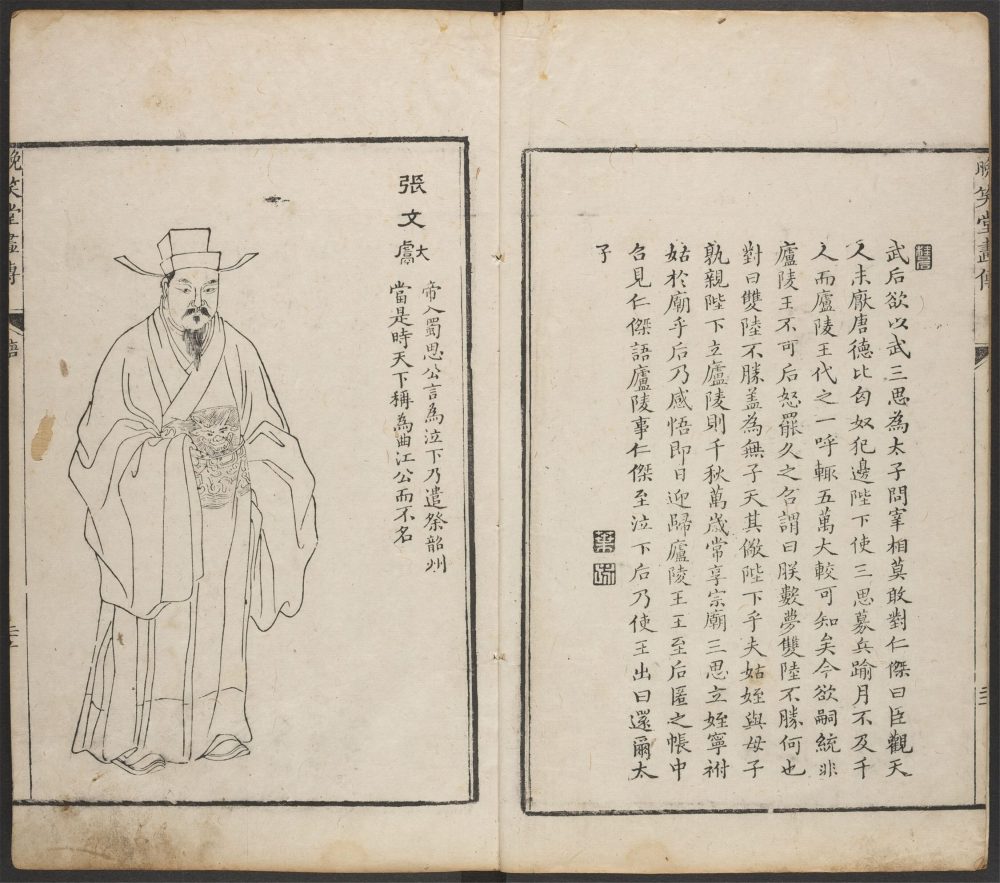 晚笑堂畫傳
武后欲以武三思為太子問宰相莫敢對仁傑曰臣觀天
人未厭唐德比匈奴犯邊陛下使三思募兵踰月不及千
人而廬陵王代之一呼輙五萬大較可知矣今欲嗣統非
廬陵王不可后怒罷久之召謂曰朕數夢雙陸不勝何也
對曰雙陸不勝盖為無子天其儆陛下乎夫姑姪與母子
孰親陛下立廬陵則千秋萬歲常享宗廟三思立姪寧祔
姑於廟乎后乃感悟即日迎歸廬陵王王至后匿之帳中
召見仁傑語廬陵事仁傑至泣下后乃使王出曰還爾太
子
張文獻
帝入蜀思公言為泣下乃遣祭韶州
當是時天下稱為曲江公而不名
晚笑堂畫傳